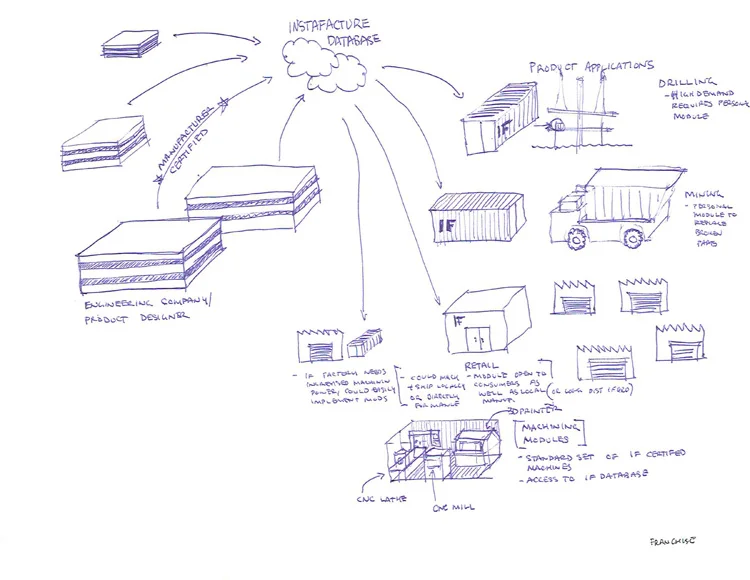 INSTAFACTURE
DATABASE
PRODUCT APPLICATIONS
DRILLING
- HIGH DEMAND
REQUIRES PERSONAL
MODULE
IF
MANUFACTURER
CERTIFIED
MINING
- PERSONAL
MODULE TO
REPLACE
BROKEN
PARTS
IF
ENGINEERING COMPANY/
PRODUCT DESIGNER
IF
RETAIL
- IF FACTORY NEEDS
INCREASED MACHINING
POWER, COULD EASILY
IMPLEMENT MODS
- COULD MACH
+ SHIP LOCALLY
OR DIRECTLY
- MODULE OPEN TO
CONSUMERS AS
WELL AS LOCAL
MANUF.
3D PRINTER
[MACHINING
MODULES]
- STANDARD SET OF IF CERTIFIED
MACHINES
- ACCESS TO IF DATABASE
CNC LATHE
CNC MILL
FRANCHISE